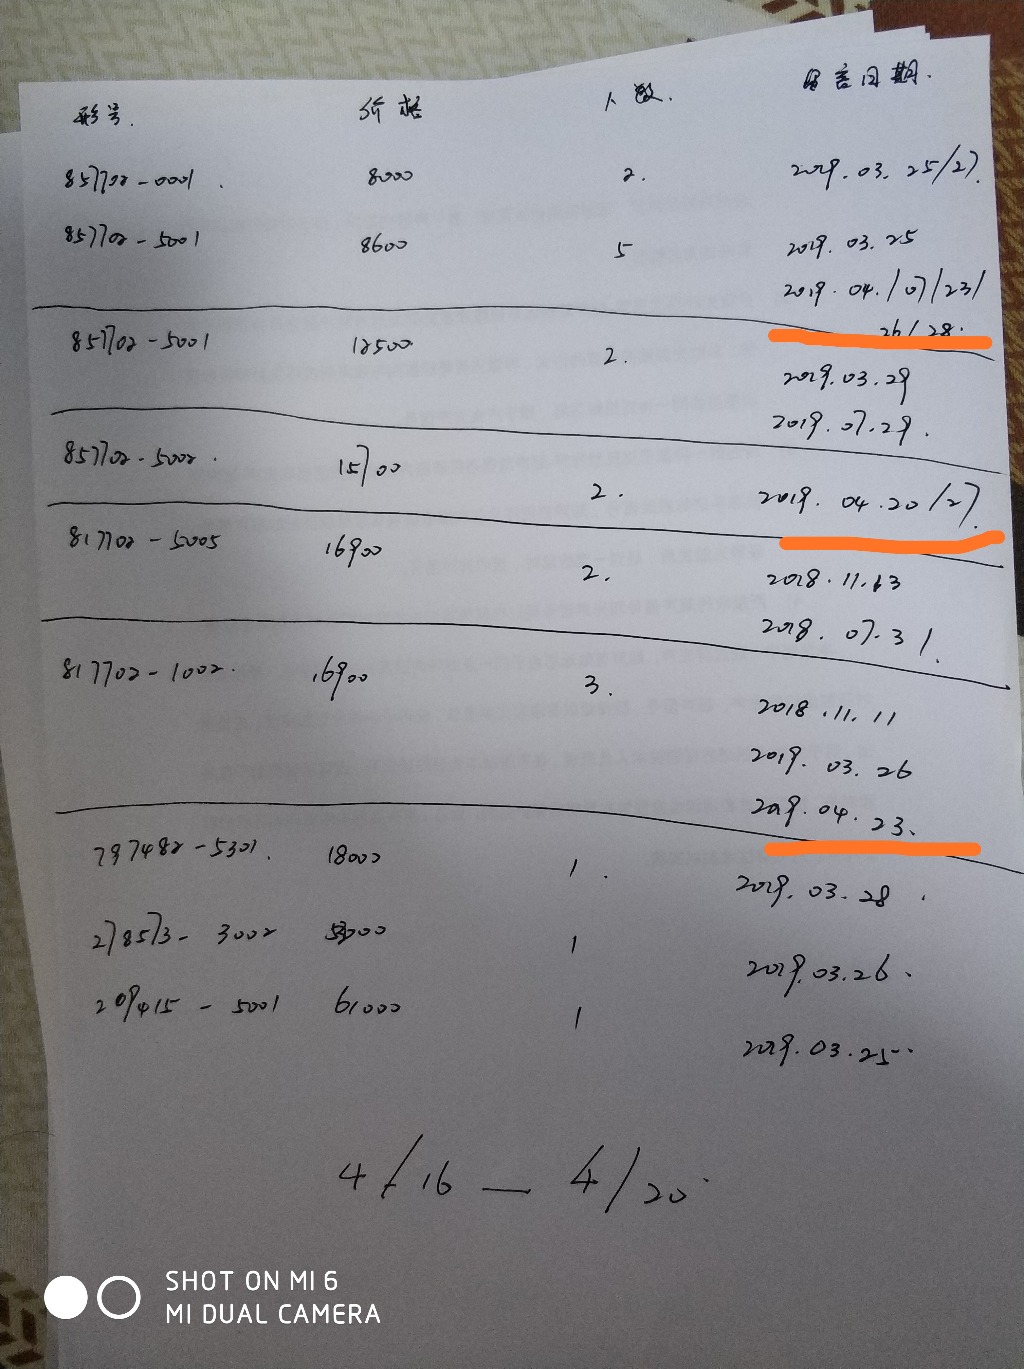 形号. 价格 人数. 留言日期.
857702-0001. 8000 2. 2019.03.25/27.
857702-5001 8600 5 2019.03.25
2019.04./07/23/
26/28.
857702-5001 12500 2. 2019.03.29
2019.07.29.
857702-5002. 15700 2. 2019.04.20/27.
817702-5005 16900 2. 2018.11.13
2018.07.31.
817702-1002. 16900 3. 2018.11.11
2019.03.26
2019.04.23.
797482-5301. 18000 1. 2019.03.28.
278573-3002 1 2019.03.26.
209415-5001 61000 1 2019.03.25.
4/16—4/20.
SHOT ON MI 6
MI DUAL CAMERA